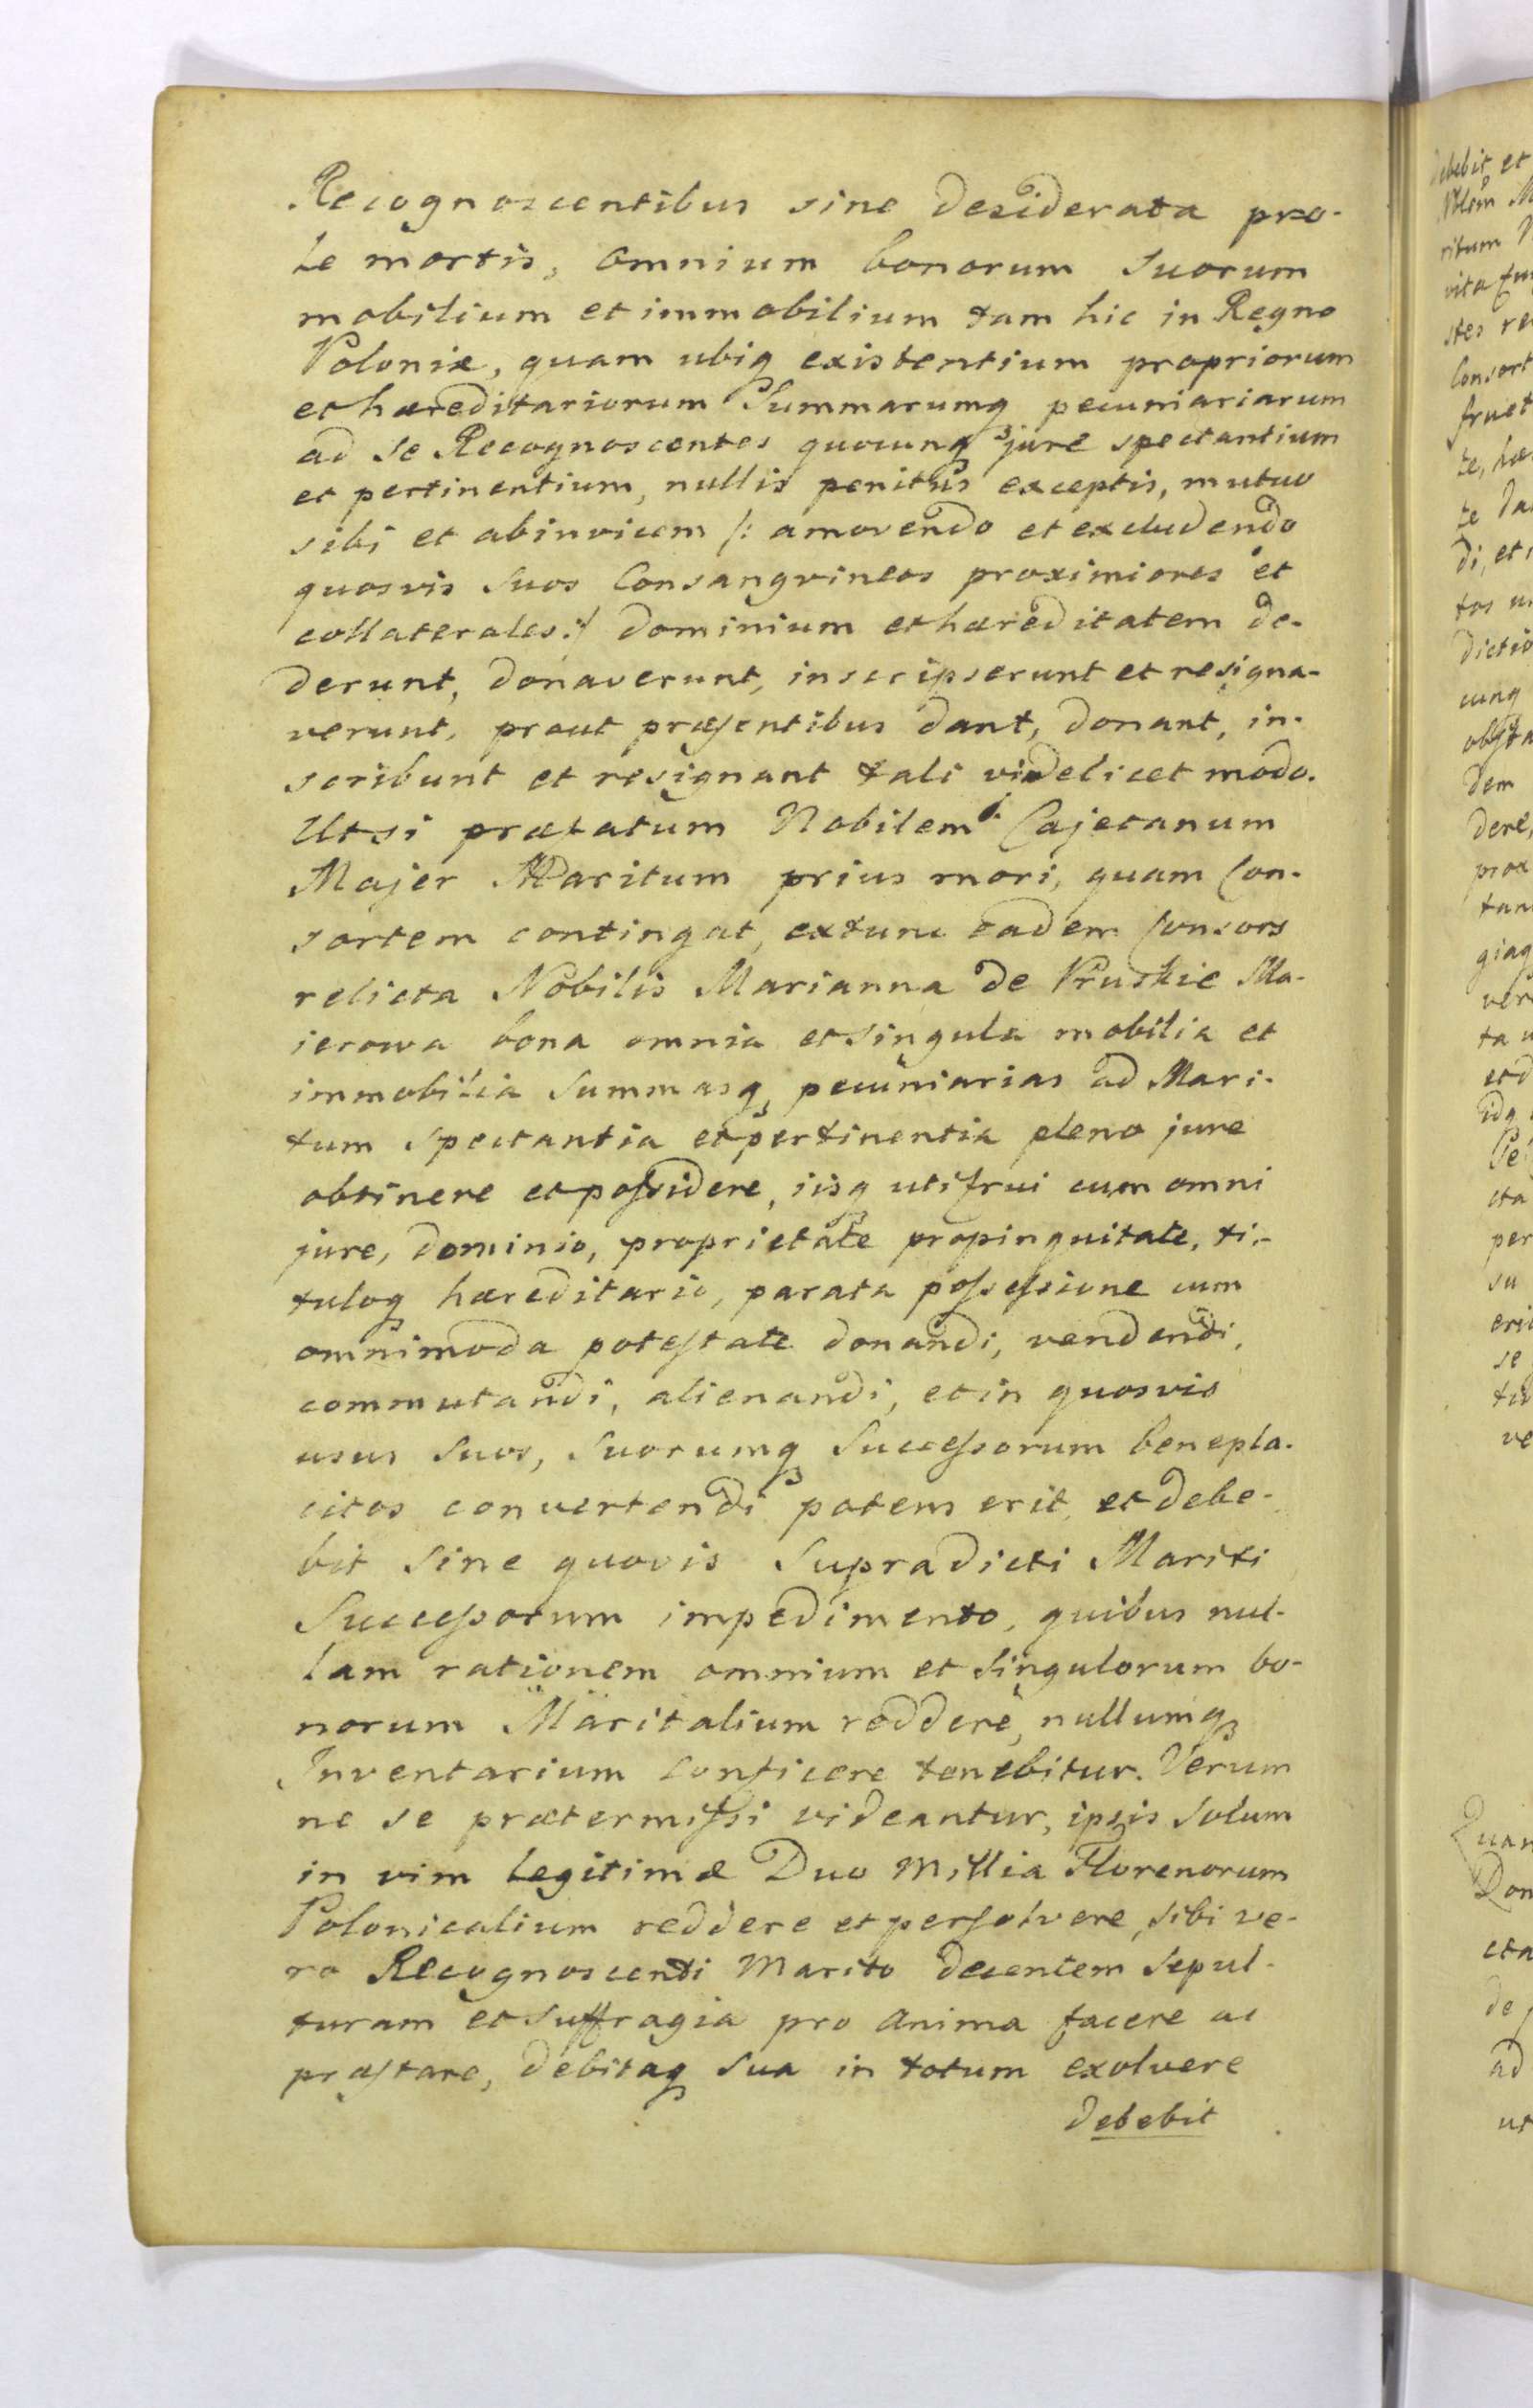 Recognoscentibus sine desiderata pro-
le mortis, omnium bonorum suorum
mobilium et immobilium tam hic in Regno
Poloniæ, quam ubiq existentium propriorum
et hæreditariorum Summarumq pecuniariarum
ad se Recognoscentes quocunq jure spectantium
et pertinentium, nullis penitus exceptis, mutuo
sibi et abinvicem /: amovendo et excludendo
quosvis suos Consangvineos proximiores et
collaterales :/ dominium et hæreditatem de-
derunt, donaverunt, inscripserunt et resigna-
verunt, prout præsentibus dant, donant, in-
scribunt et resignant tali videlicet modo.
Ut si præfatum Nobilem Cajetanum
Majer Maritum prius mori, quam Con-
sortem contingat, extunc eadem Consors
relicta Nobilis Marianna de Pruskie Ma-
ierowa bona omnia et singula mobilia et
immobilia summasq pecuniarias ad Mari-
tum spectantia et pertinentia pleno jure
obtinere et possidere, iisq uti frui cum omni
jure, dominio, proprietate propinquitate, ti-
tuloq hæreditario, parata possessione cum
omnimoda potestate donandi, vendendi,
commutandi, alienandi, et in quosvis
usus suos, suorumq Successorum benepla-
citos convertendi potens erit, et debe-
bit sine quovis supradicti Mariti
Successorum impedimento, quibus nul-
lam rationem omnium et singulorum bo-
norum Maritalium reddere, nullumq
Inventarium conficere tenebitur. Verum
ne se prætermissi videantur, ipsis solum
in vim legitimæ Duo Millia Florenorum
Polonicalium reddere et persolvere, sibi ve-
ro Recognoscenti Marito decentem sepul-
turam et suffragia pro anima facere ac
præstare, debitaq sua in totum exolvere
debebit